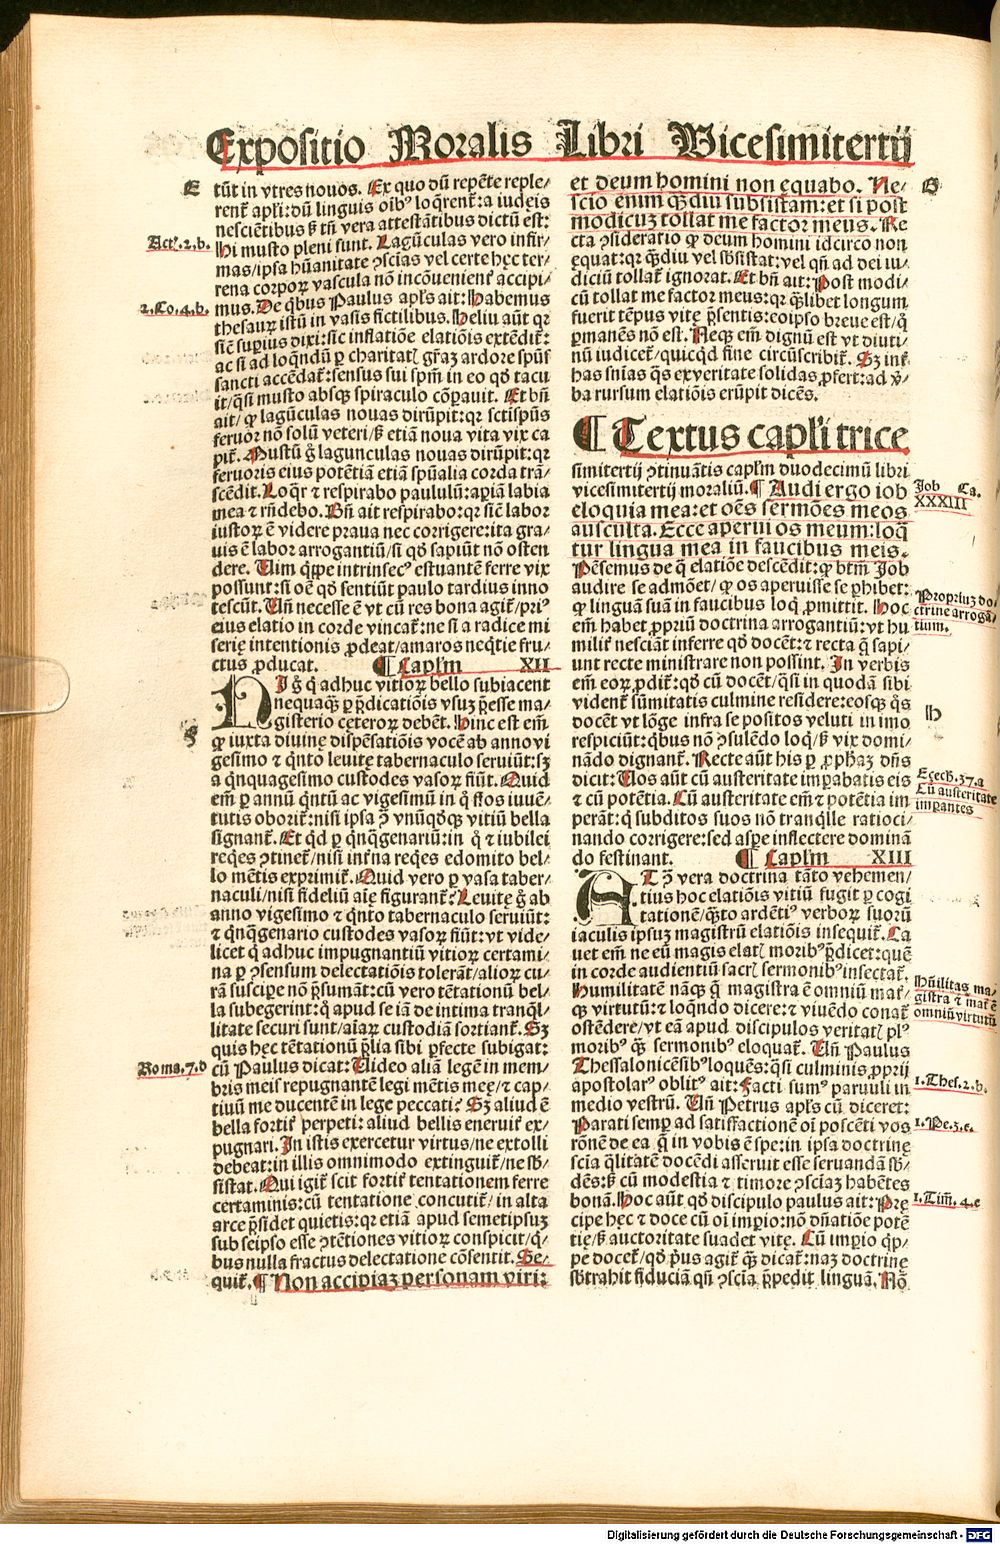 Expositio Moralis Libri Vicesimitertij
E
tūt in vtres nouos. Ex quo dū repēte reple/
renṫ apl̄i: dū linguis oībꝰ loq̄renṫ: a iudeis
nesciētibus ß tn̄ vera attestātibus dictū est:
Actꝰ. 2. b.
Hi musto pleni sunt. Lagūculas vero infir/
mas/ipsa hūanitate ꝯscīas vel certe hęc ter/
rena corporꝝ vascula nō incōuenienṫ accipi/
2. Co. 4. b.
mus. De q̇bus Paulus apl̄s ait: Habemus
thesaurꝝ istū in vasis fictilibus. Heliu aūt qꝛ
sic̄ supius dixi: sic inflatiōe elatiōis extēdiṫ:
ac si ad loq̄ndū ꝑ charitatꝭ gr̄aꝫ ardore sp̄us
sancti accēdaṫ: sensus sui sp̄m in eo qđ tacu
it/q̄si musto absqꝫ spiraculo cōꝑauit. Et bn̄
ait/ ꝙ lagūculas nouas dirūpit: qꝛ sct̄isp̄us
feruor nō solū veteri/ß etiā noua vita vix ca
piṫ. Mustū g̊ lagunculas nouas dirūpit: qꝛ
feruoris eius potētiā etiā sp̄ualia corda trā/
scēdit. Loq̄r ⁊ respirabo paululū: aꝑiā labia
mea ⁊ rn̄debo. Bn̄ ait respirabo: qꝛ sic̄ labor
iustoꝝ ē videre praua nec corrigere: ita gra/
uis ē labor arrogantiū/si qđ sapiūt nō osten
dere. Uim q̇ppe intrinsecꝰ estuantē ferre vix
possunt: si oē qđ sentiūt paulo tardius inno
tescūt. Un̄ necesse ē vt cū res bona agiṫ/priꝰ
eius elatio in corde vincaṫ: ne si a radice mi
serię intentionis ꝓdeat/amaros neq̇tie fru/
ctus ꝓducat. ¶ Capl̄m XII
NJ g̊ q̇ adhuc vitioꝝ bello subiacent
nequaq̄ꝫ ꝑ p̄dicatiōis vsuꝫ p̄esse ma/
gisterio cęterorꝝ debēt. Hinc est em̄
F
ꝙ iuxta divinę dispēsatiōis vocē ab anno vi
gesimo ⁊ q̇nto leuitę tabernaculo seruiūt: sꝫ
a q̇nquagesimo custodes vasoꝝ fiūt. Quid
em̄ ꝑ annū q̇ntū ac vigesimū in q̊ flos iuuē/
tutis oboriṫ: nisi ipsa ꝯ̄ vnūq̊dqꝫ vitiū bella
signanṫ. Et q̇d ꝑ q̇nq̄genariū: in q̊ ⁊ iubilei
req̇es ꝯtineṫ/nisi int̄na req̇es edomito bel/
lo mētis exprimiṫ. Quid vero ꝑ vasa taber/
naculi/nisi fideliū aīę figuranṫ? Leuitę g̊ ab
anno vigesimo ⁊ q̇nto tabernaculo seruiūt:
⁊ q̇nq̄genario custodes vasoꝝ fiūt: vt vide/
licet q̇ adhuc impugnantiū vitioꝝ certami/
na ꝑ ꝯsensum delectatiōis tolerāt/alioꝝ cu/
rā suscipe nō p̄sumāt: cū vero tētationū bel/
la subegerint: q̊ apud se iā de intima tranq̇l/
litate securi sunt/aīaꝝ custodiā sortianṫ. Sꝫ
quis hęc tētationū p̄lia sibi ꝑfecte subigat:
Roma. 7. d
cū Paulus dicat: Uideo aliā legē in mem/
bris meis repugnantē legi mētis meę/⁊ cap/
tiuū me ducentē in lege peccati? Sꝫ aliud ē
bella fortiṫ perpeti: aliud bellis eneruiṫ ex/
pugnari. In istis exercetur virtus/ne extolli
debeat: in illis omnimodo extinguiṫ/ne sb̄/
sistat. Qui igiṫ scit fortiṫ tentationem ferre
certaminis: cū tentatione concutiṫ/ in alta
arce p̄sidet quietis: qꝛ etiā apud semetipsuꝫ
sub seipso esse ꝯtētiones vitioꝝ conspicit/q̇/
bus nulla fractus delectatione cōsentit. Se/
quiṫ. ¶ Non accipiaꝫ personam viri:
et deum homini non equabo. Ne/
G
scio enim q̄ꝫdiu subsistam: et si post
modicuꝫ tollat me factor meus. Re
cta ꝯsideratio ꝙ deum homini idcirco non
equat: qꝛ q̄ꝫdiu vel sb̄sistat: vel qn̄ ad dei iu/
diciū tollaṫ ignorat. Et bn̄ ait: Post modi/
cū tollat me factor meus: qꝛ q̄ꝫlibet longum
fuerit tēpus vitę p̄sentis: eoipso breue est/q̊
ꝑmanēs nō est. Neqꝫ em̄ dignū est vt diuti/
nū iudiceṫ/quicq̇d fine circūscribiṫ. Sꝫ inṫ
has sn̄ias q̄s ex veritate solidas ꝓfert: ad v̄/
ba rursum elatiōis erūpit dicēs.
¶ Textus capl̄i trice
simitertij ꝯtinuātis capl̄m duodecimū libri
vicesimitertij moraliū. ¶ Audi ergo iob
Job Ca.
XXXIII
eloquia mea: et oēs sermōes meos
ausculta. Ecce aperui os meum: loq̄
tur lingua mea in faucibus meis.
Pēsemus de q̄ elatiōe descēdit: ꝙ btm̄ Job
audire se admōet/ ꝙ os aperuisse se ꝑhibet:
ꝙ linguā suā in faucibus loq̇ ꝓmittit. Hoc
Propriuꝫ do/
ctrine arrogā/
tium.
em̄ habet ꝓpriū doctrina arrogantiū: vt hu
militṫ nesciāt inferre qđ docēt: ⁊ recta q̄ sapi/
unt recte ministrare non possint. In verbis
em̄ eoꝝ ꝓdiṫ: qđ cū docēt/q̄si in quodā sibi
videnṫ sūmitatis culmine residere: eosqꝫ q̄s
docēt vt lōge infra se positos veluti in imo
H
respiciūt: q̇bus nō ꝯsulēdo loq̇/ß vix domi/
nādo dignanṫ. Recte aūt his ꝑ ꝓphaꝫ dn̄s
Eȝech. 37. a
Cū austeritate
imperantes
dicit: Uos aūt cū austeritate imꝑabatis eis
⁊ cū potētia. Cū austeritate em̄ ⁊ potētia im
perāt: q̇ subditos suos nō tranq̇lle ratioci/
nando corrigere: sed aspe inflectere dominā
do festinant. ¶ Capl̄m XIII
AT ꝯ̄ vera doctrina tāto vehemen/
tius hoc elatiōis vitiū fugit ꝑ cogi
tationē/q̄ꝫto ardētiꝰ verboꝝ suorū
iaculis ipsuꝫ magistrū elatiōis insequiṫ. Ca
uet em̄ ne eū magis elatꝭ moribꝰ p̄dicet: quē
in corde audientiū sacrꝭ sermonibꝰ insectaṫ.
Hūilitas ma/
gistra ⁊ maṫ ē
omniū virtutū
Humilitatē nāqꝫ q̄ magistra ē omniū maṫ/
qꝫ virtutū: ⁊ loq̄ndo dicere: ⁊ viuēdo conaṫ
ostēdere/vt eā apud discipulos veritatꝭ plꝰ
moribꝰ q̄ꝫ sermonibꝰ eloquaṫ. Un̄ Paulus
Thessalonicēsibꝰ loquēs: q̄si culminis ꝓprij
1. Thes. 2. b.
apostolatꝰ oblitꝰ ait: Facti sumꝰ paruuli in
medio vestrū. Un̄ Petrus apl̄s cū diceret:
1. Pe. 3. c.
Parati semꝑ ad satisfactionē oī poscēti vos
rōnē de ea q̄ in vobis ē spe: in ipsa doctrinę
scīa q̄litatē docēdi asseruit esse seruandā sb̄/
dēs: ß cū modestia ⁊ timore ꝯsciaꝫ habētes
1. Tim̄. 4. c
bonā. Hoc aūt qđ discipulo paulus ait: Prę
cipe hęc ⁊ doce cū oī imꝑio: nō dn̄atiōe potē
tię/ß auctoritate suadet vitę. Cū imꝑio q̇p/
pe doceṫ/qđ p̄us agiṫ q̄ꝫ dicaṫ: naꝫ doctrine
sb̄trahit fiduciā qn̄ ꝯscīa p̄pedit linguā. Nō